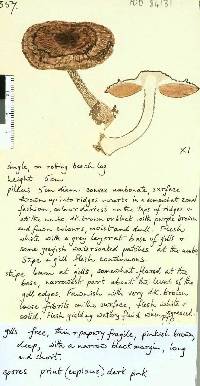 557.
X1
Single, on rotting beech log
height 5cm
pileus 5cm diam. convex umbonate, surface
thrown up into ridges in a somewhat zonal
fashion, colour darkest on the tops of ridges &
at the umbo. dk. brown or black with purple brown
and fawn colours, moist and dull. Flesh
white with a grey layer at base of gills &
some greyish waterlogged patches at the umbo
Stipe & gill flesh continuous.
stipe brown at gills, somewhat flared at the
base, narrowest part about the level of the
gill edges, brownish with very dk. brown
fibrils on the surface, flesh white &
solid. Flesh yielding watery fluid when
gills free, thin & papery fragile, pinkish brown,
deep, with a narrow black margin, long
and short.
spores print (copious) dark pink